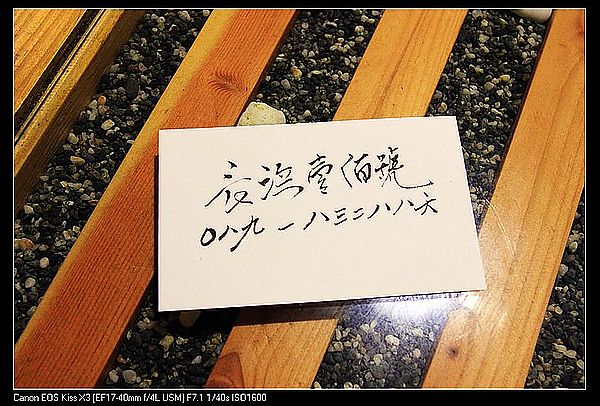 長濱壹佰號
〇八九—八三二八八六
Canon EOS Kiss X3 [EF17-40mm f/4L USM] F7.1 1/40s ISO1600